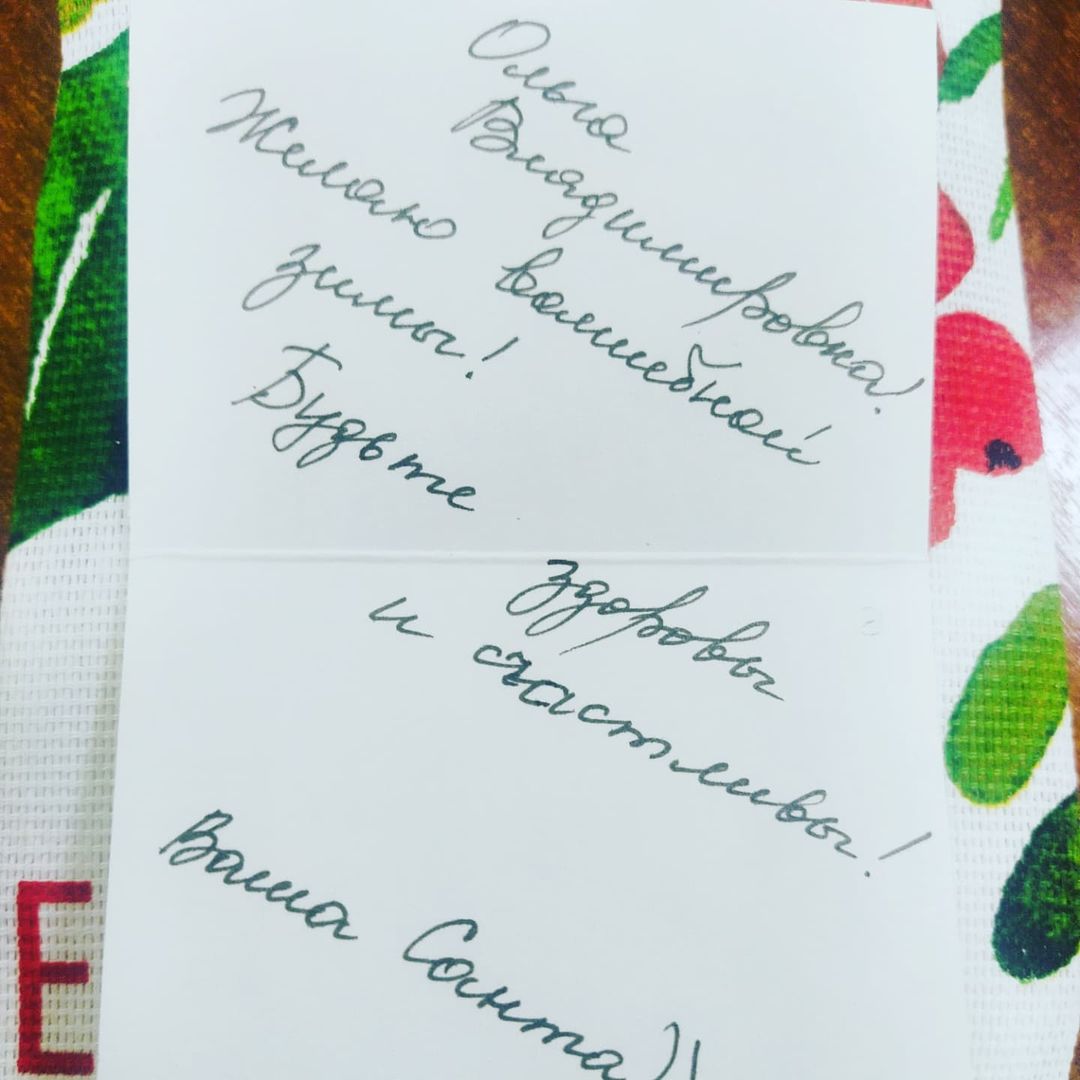 Ольга
Владимировна!
Желаю волшебной
зимы!
Будьте
здоровы
и счастливы!
Ваша Санта))
E